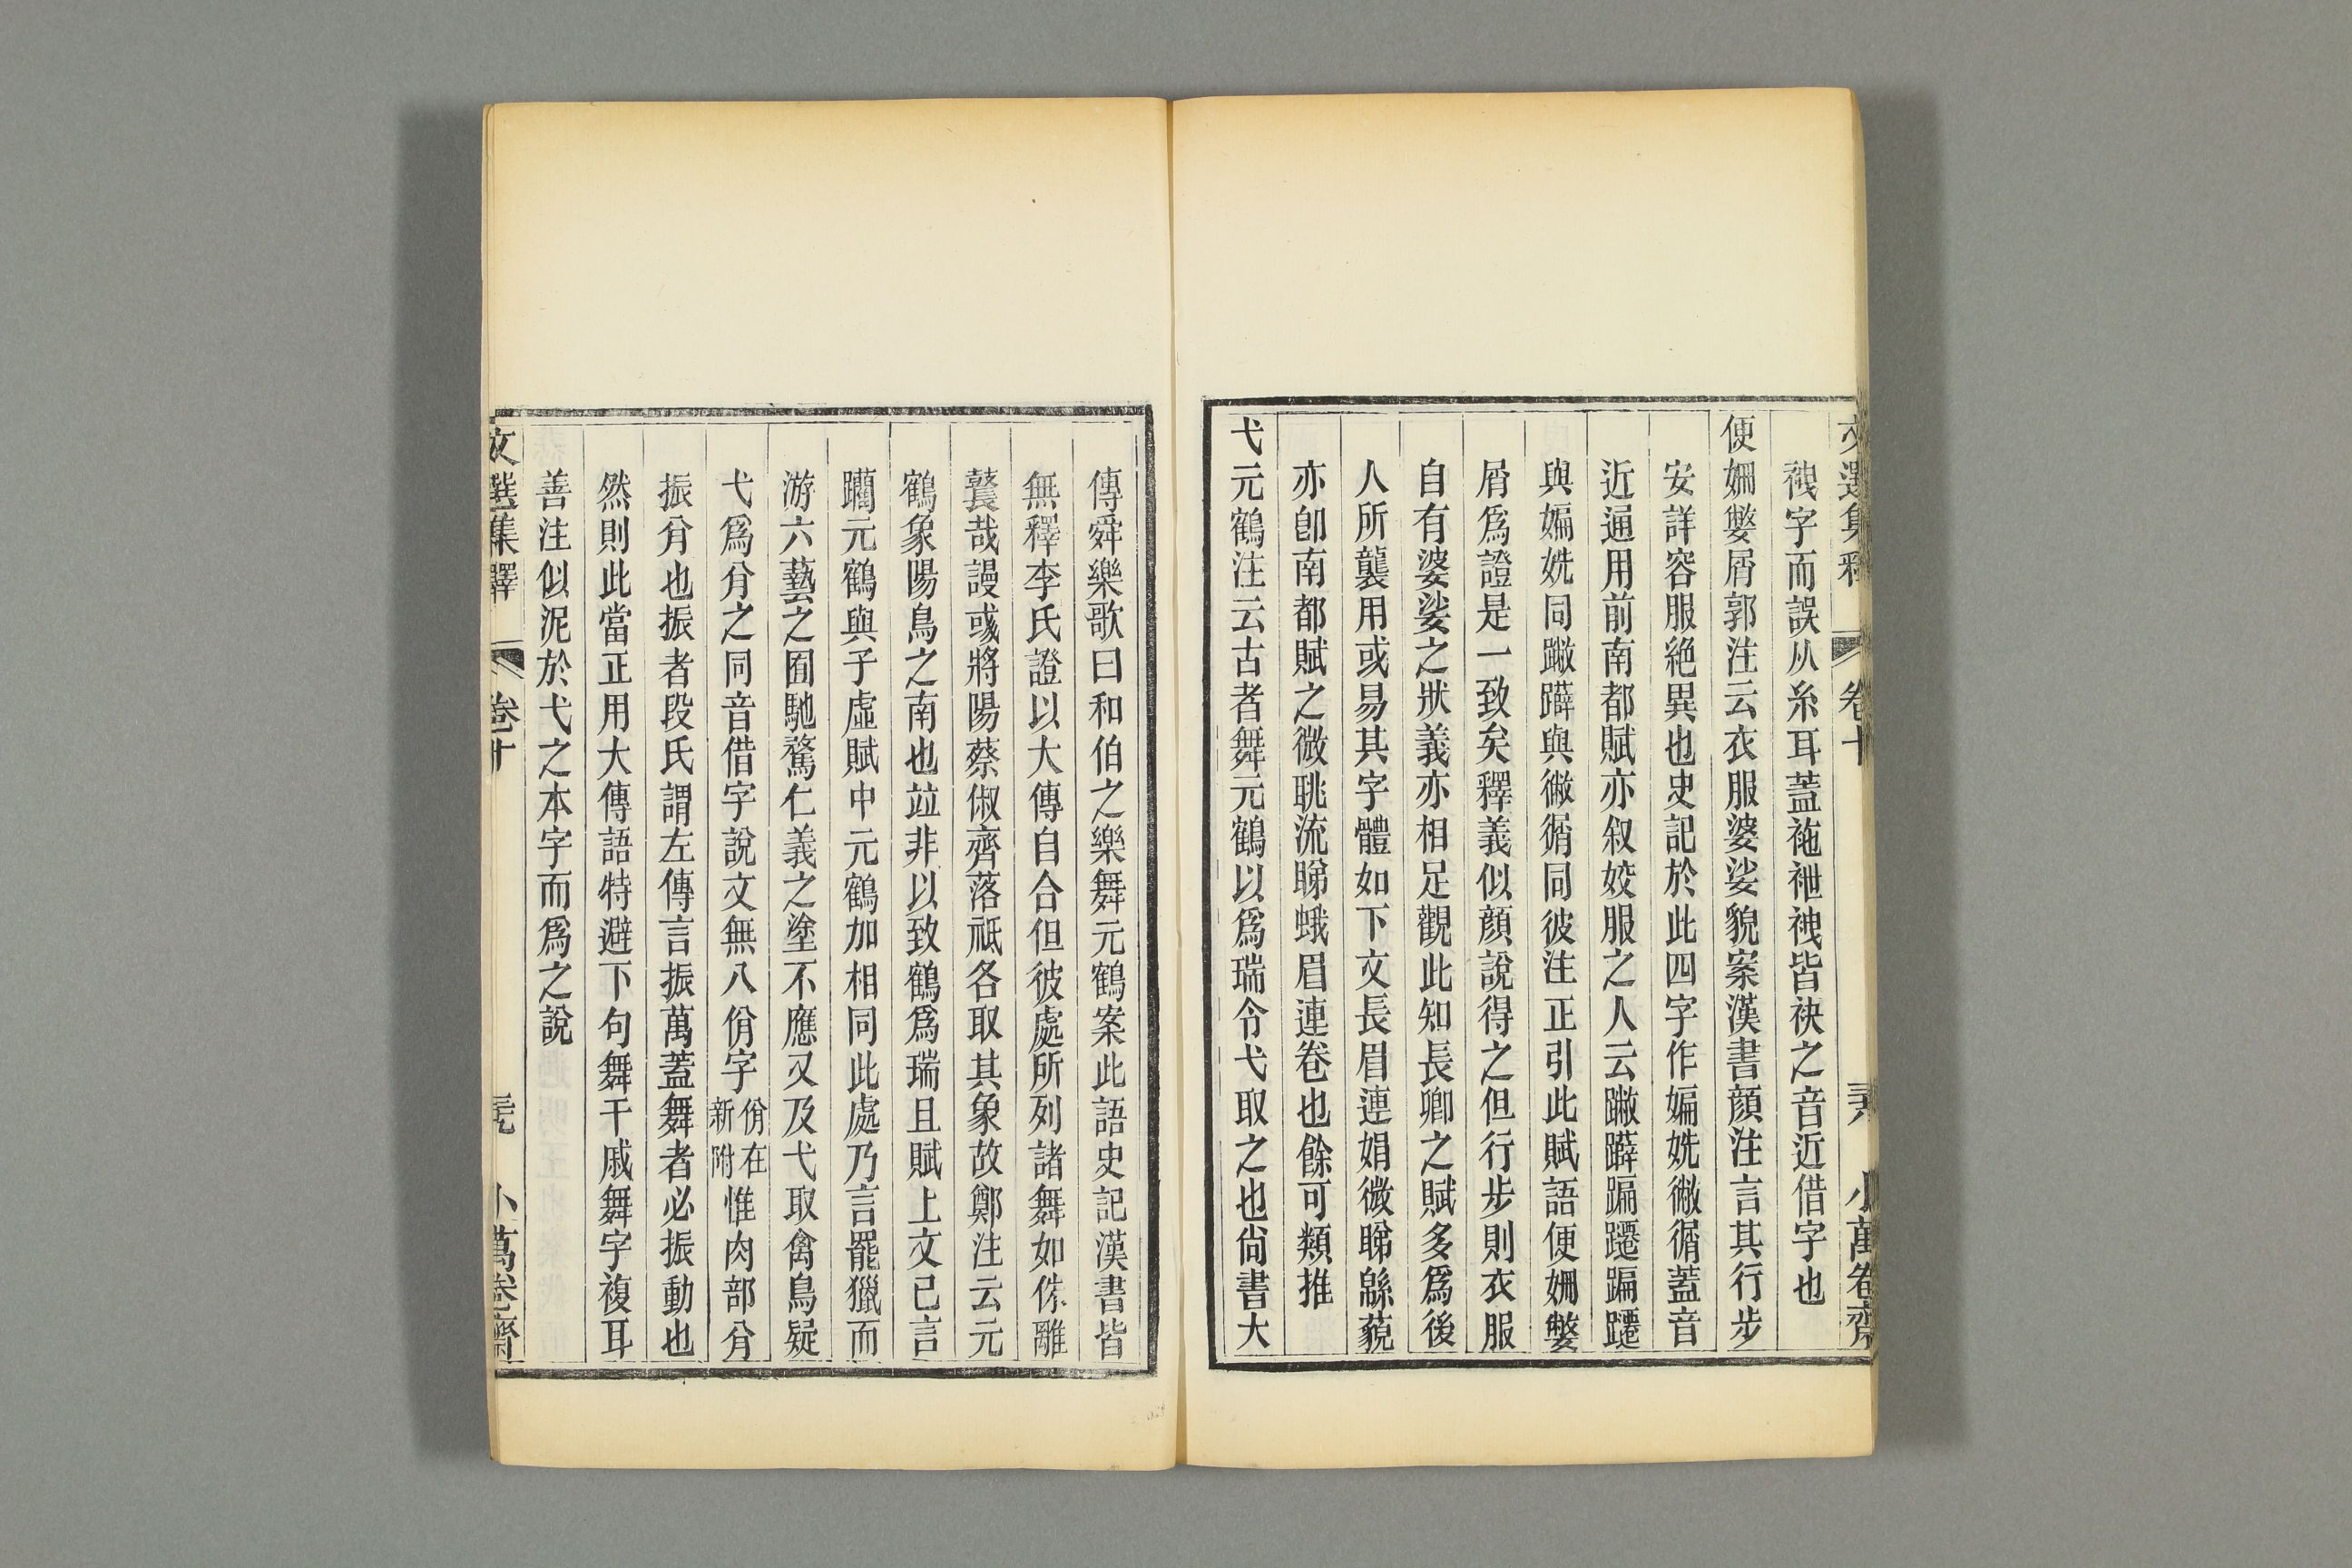 文選集釋 卷十 小萬卷齋
袣字而誤从糸耳蓋袘袣皆袂之音近借字也
便姍嫳屑郭注云衣服婆娑貌案漢書顏注言其行步
安詳容服絕異也史記於此四字作媥姺徶㣯蓋音
近通用前南都賦亦叙姣服之人云蹩躃蹁躚蹁躚
與媥姺同蹩躃與徶㣯同彼注正引此賦語便姍嫳
屑爲證是一致矣釋義似顏說得之但行步則衣服
自有婆娑之狀義亦相足觀此知長卿之賦多爲後
人所襲用或易其字體如下文長眉連娟微睇緜藐
亦卽南都賦之微眺流睇蛾眉連卷也餘可類推
弋元鶴注云古者舞元鶴以爲瑞令弋取之也尙書大
傳舜樂歌曰和伯之樂舞元鶴案此語史記漢書皆
無釋李氏證以大傳自合但彼處所列諸舞如侏離
鼚哉謾彧將陽蔡俶齊落祗各取其象故鄭注云元
鶴象陽鳥之南也竝非以致鶴爲瑞且賦上文已言
躪元鶴與子虛賦中元鶴加相同此處乃言罷獵而
游六藝之囿馳騖仁義之塗不應又及弋取禽鳥疑
弋爲㑞之同音借字說文無八佾字佾在新附惟肉部㑞
振㑞也振者段氏謂左傳言振萬蓋舞者必振動也
然則此當正用大傳語特避下句舞干戚舞字複耳
善注似泥於弋之本字而爲之說
文選集釋 卷十 小萬卷齋